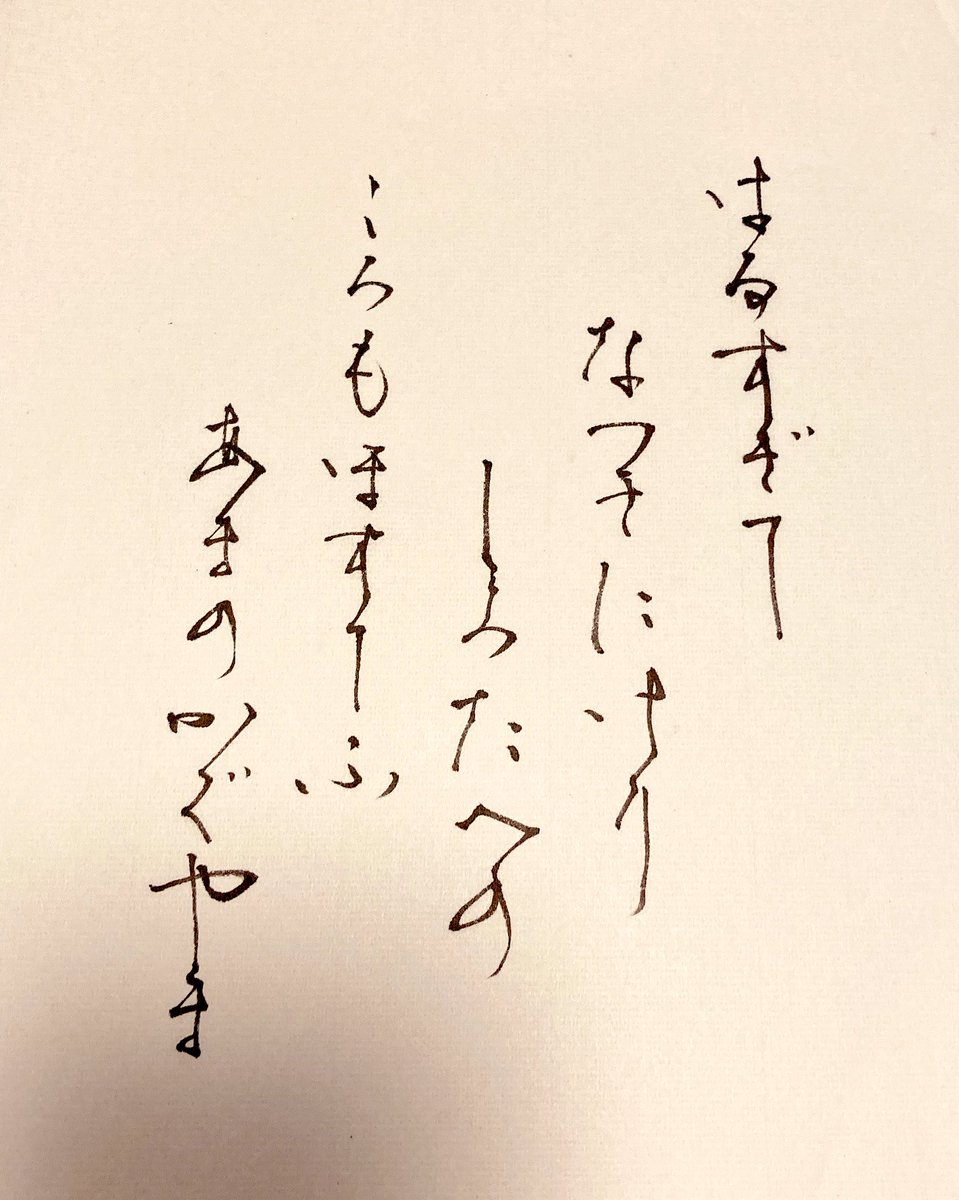 はるすぎて
なつきにけり
しろたへの
ころもほすてふ
あまのかぐやま